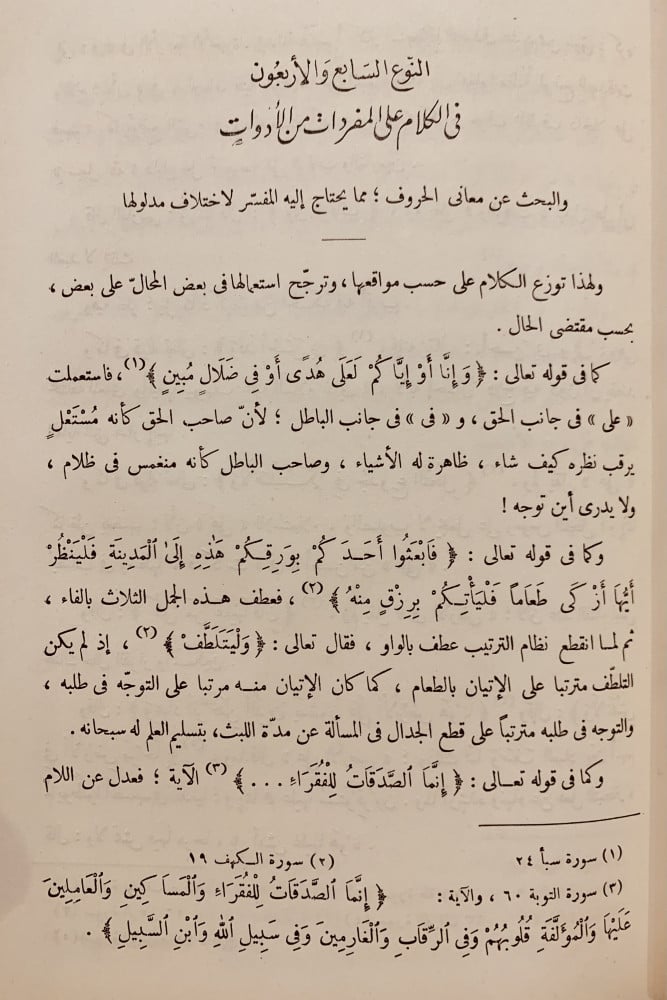 النّوع السَابع وَالأربعُون
فى الكلام على المفردات من الأدواتٍ
والبحث عن معانى الحروف ؛ مما يحتاج إليه المفسّر لاختلاف مدلولها
ولهذا توزع الكلام على حسب مواقعها ، وترجّح استعمالها فى بعض المحالّ على بعض ،
بحسب مقتضى الحال .
كما فى قوله تعالى : ﴿ وَإِنَّا أَوْ إِيَّاكُمْ لَعَلَى هُدًى أَوْ فِى ضَلَالٍ مُبِينٍ ﴾(١) ، فاستعملت
« على » فى جانب الحق ، و « فى » فى جانب الباطل ؛ لأنّ صاحب الحق كأنه مُسْتَعْلٍ
يرقب نظره كيف شاء ، ظاهرة له الأشياء ، وصاحب الباطل كأنه منغمس فى ظلام ،
ولا يدرى أين توجه !
وكما فى قوله تعالى : ﴿ فَابْعَثُوا أَحَدَكُمْ بِوَرِقِكُمْ هَٰذِهِ إِلَىٰ ٱلْمَدِينَةِ فَلْيَنْظُرْ
أَيُّهَا أَزْكَى طَعَاماً فَلْيَأْتِكُمْ بِرِزْقٍ مِنْهُ ﴾(٢) ، فعطف هذه الجمل الثلاث بالفاء ،
ثم لما انقطع نظام الترتيب عطف بالواو ، فقال تعالى : ﴿ وَلْيَتَلَطَّفْ ﴾(٢) ، إذ لم يكن
التلطّف مترتبا على الإتيان بالطعام ، كما كان الإتيان منه مرتبا على التوجّه فى طلبه ،
والتوجه فى طلبه مترتباً على قطع الجدال فى المسألة عن مدّة اللبث، بتسليم العلم له سبحانه .
وكما فى قوله تعالى : ﴿ إِنَّمَا ٱلصَّدَقَاتُ لِلْفُقَرَاءِ . . . ﴾(٣) الآية ؛ فعدل عن اللام
(١) سورة سبأ ٢٤ (٢) سورة الكهف ١٩
(٣) سورة التوبة ٦٠ ، والآية : ﴿ إِنَّمَا ٱلصَّدَقَاتُ لِلْفُقَرَاءِ وَٱلْمَسَاكِينِ وَٱلْعَامِلِينَ
عَلَيْهَا وَٱلْمُؤَلَّفَةِ قُلُوبُهُمْ وَفِى ٱلرِّقَابِ وَٱلْغَارِمِينَ وَفِى سَبِيلِ ٱللهِ وَٱبْنِ ٱلسَّبِيلِ ﴾ .